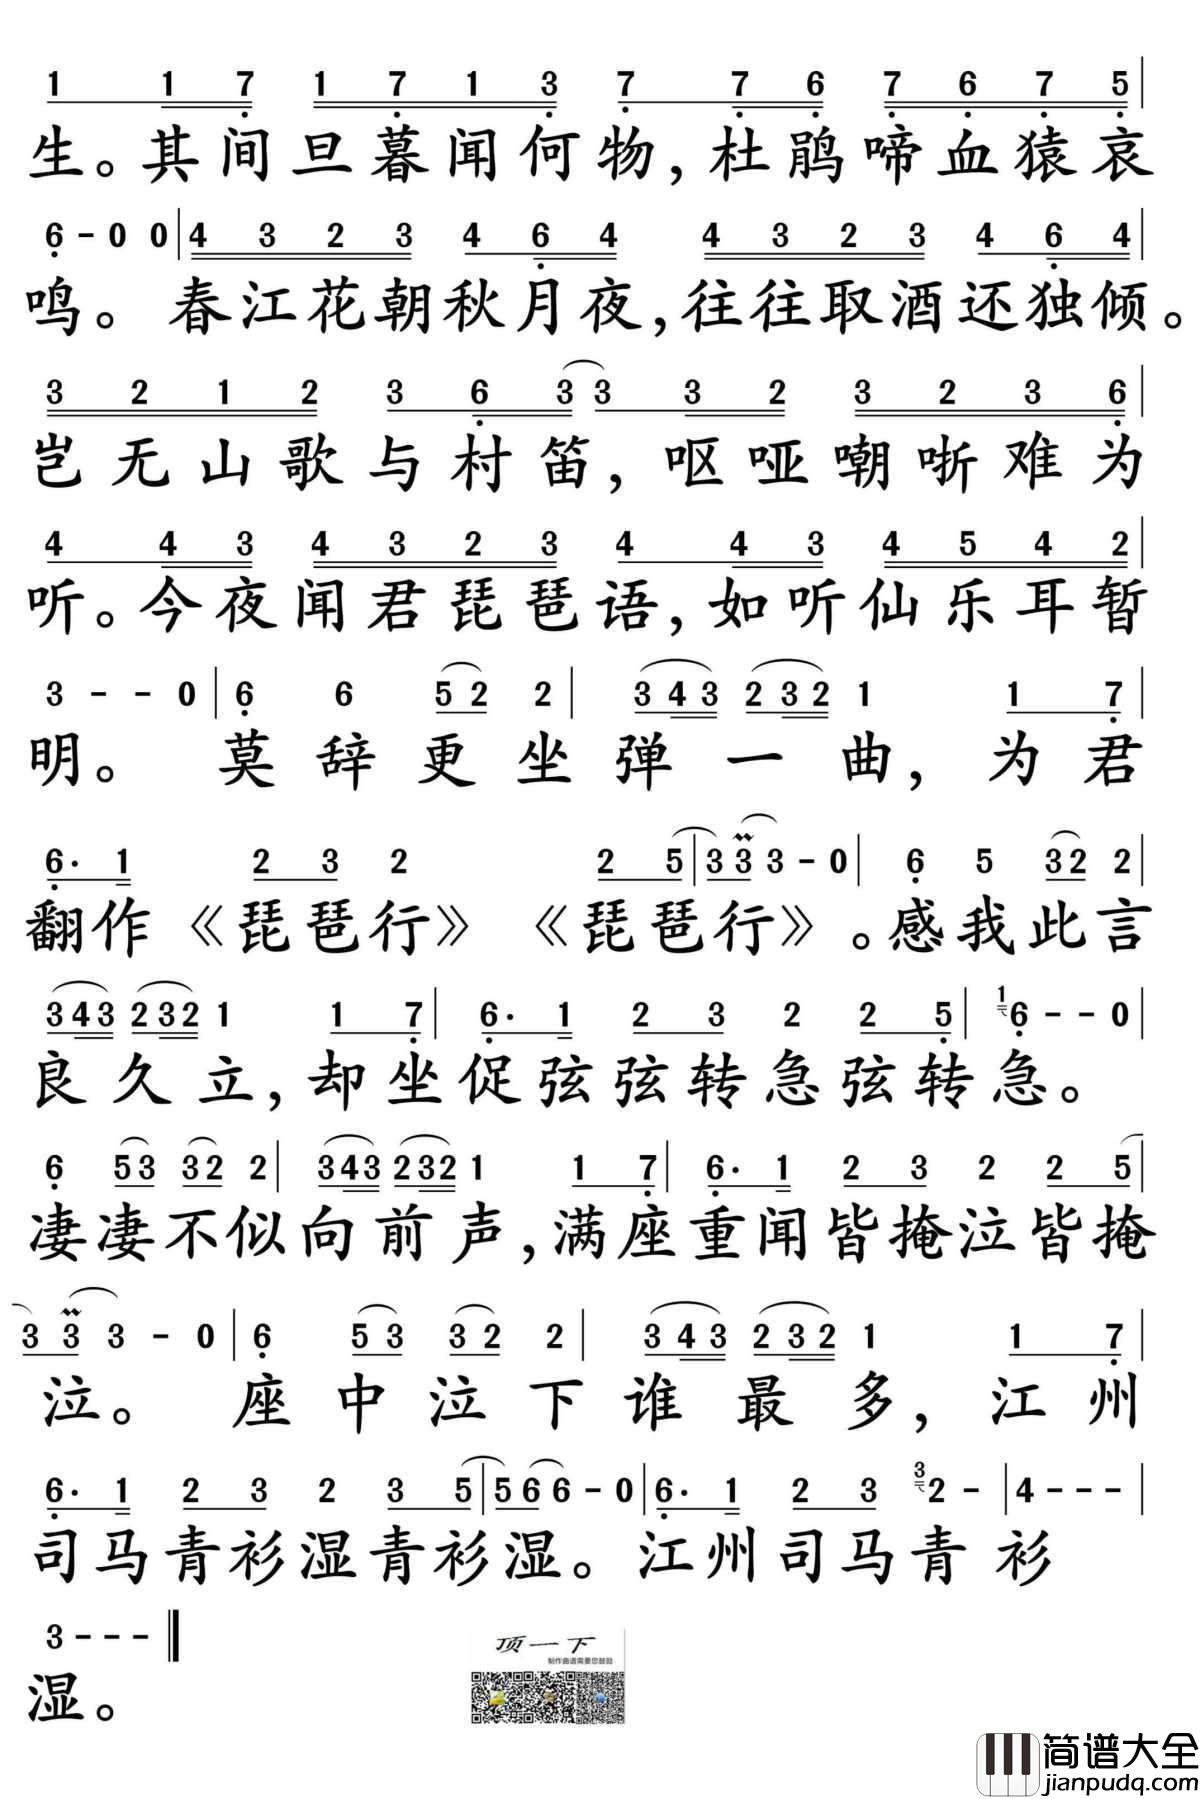 1 1 7 1 7 1 3 7 7 6 7 6 7 5
生。其间旦暮闻何物,杜鹃啼血猿哀
6 - 0 0 4 3 2 3 4 6 4 4 3 2 3 4 6 4
鸣。春江花朝秋月夜,往往取酒还独倾。
3 2 1 2 3 6 3 3 3 2 3 2 3 6
岂无山歌与村笛,呕哑嘲哳难为
4 4 3 4 3 2 3 4 4 3 4 5 4 2
听。今夜闻君琵琶语,如听仙乐耳暂
3 - - 0 6 6 5 2 2 3 4 3 2 3 2 1 1 7
明。莫辞更坐弹一曲,为君
6· 1 2 3 2 2 5 3 3 3 - 0 6 5 3 2 2
翻作《琵琶行》《琵琶行》。感我此言
3 4 3 2 3 2 1 1 7 6· 1 2 3 2 2 5 1 6 - - 0
良久立,却坐促弦弦转急弦转急。
6 5 3 3 2 2 3 4 3 2 3 2 1 1 7 6· 1 2 3 2 2 5
凄凄不似向前声,满座重闻皆掩泣皆掩
3 3 3 - 0 6 5 3 3 2 2 3 4 3 2 3 2 1 1 7
泣。座中泣下谁最多,江州
6· 1 2 3 2 3 5 5 6 6 - 0 6· 1 2 3 3 2 - 4 - - -
司马青衫湿青衫湿。江州司马青衫
3 - - -
湿。
顶一下
制作曲谱需要您鼓励
简谱大全
jianpudq.com